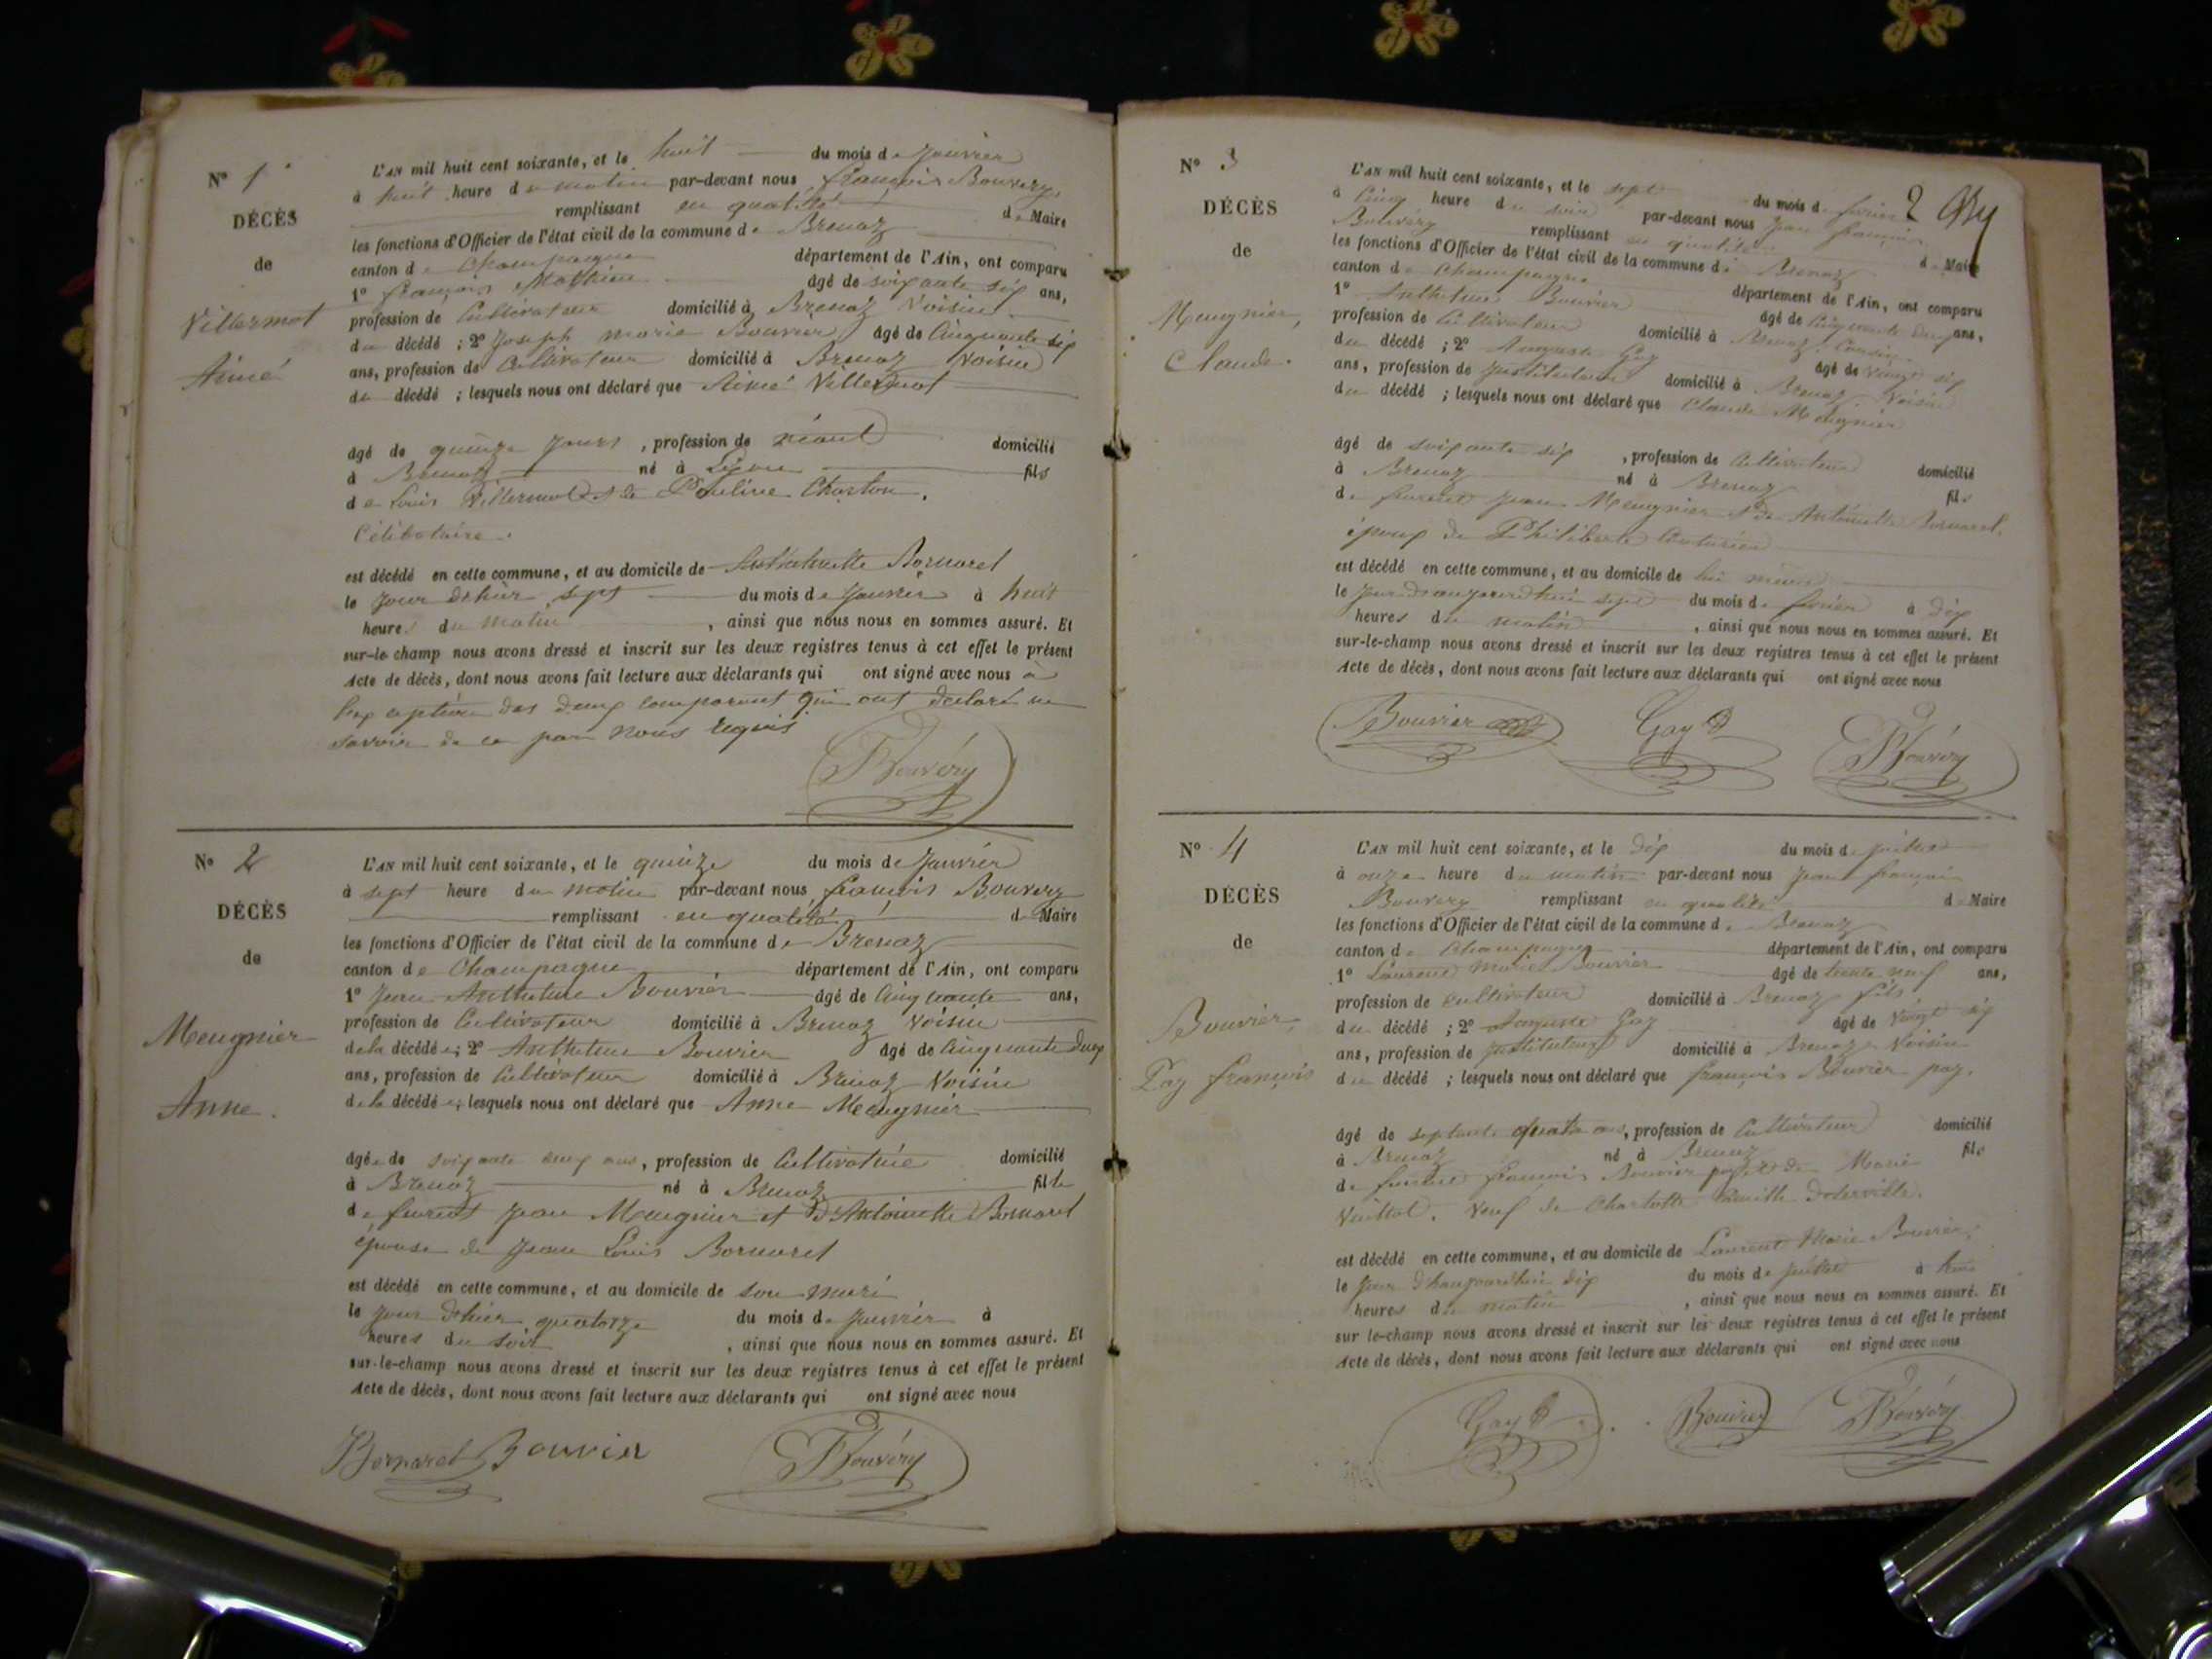 N° 1
DÉCÈS
de
Villermot
Aimé
L'AN mil huit cent soixante, et le huit du mois de Janvier
à huit heure du matin par-devant nous françois Bouvery
remplissant en qualité de Maire
les fonctions d'Officier de l'état civil de la commune de Brenaz
canton de Champagne département de l'Ain, ont comparu
1° françois Mathieu âgé de soixante six ans,
profession de Cultivateur domicilié à Brenaz Voisin
du décédé ; 2° Joseph marie Bouvier âgé de Cinquante six
ans, profession de Cultivateur domicilié à Brenaz Voisin
du décédé ; lesquels nous ont déclaré que Aimé Villermot
âgé de quinze jours, profession de néant domicilié
à Brenaz né à Lyon fils
de Louis Villermot et de Charton.
Célibataire.
est décédé en cette commune, et au domicile de Bornarel
le jour d'hier sept du mois de Janvier à huit
heures du matin, ainsi que nous nous en sommes assuré. Et
sur-le-champ nous avons dressé et inscrit sur les deux registres tenus à cet effet le présent
Acte de décès, dont nous avons fait lecture aux déclarants qui ont signé avec nous à
l'exception des deux comparant qui ont déclaré ne
savoir de ce par nous requis
Bouvery
N° 2
DÉCÈS
de
Meugnier
Anne.
L'AN mil huit cent soixante, et le quinze du mois de Janvier
à sept heure du matin par-devant nous françois Bouvery
remplissant en qualité de Maire
les fonctions d'Officier de l'état civil de la commune de Brenaz
canton de Champagne département de l'Ain, ont comparu
1° Jean Anthelme Bouvier âgé de Cinquante ans,
profession de Cultivateur domicilié à Brenaz Voisin
de la décédée ; 2° Anthelme Bouvier âgé de Cinquante deux
ans, profession de Cultivateur domicilié à Brenaz Voisin
de la décédée ; lesquels nous ont déclaré que Anne Meugnier
âgée de soixante ans, profession de Cultivatrice domicilié
à Brenaz né à Brenaz fille
de Jean Meugnier et d'Antoinette Bornarel
épouse de Jean Louis Bornarel
est décédé en cette commune, et au domicile de son mari
le jour d'hier quatorze du mois de Janvier à
heures du soir, ainsi que nous nous en sommes assuré. Et
sur-le-champ nous avons dressé et inscrit sur les deux registres tenus à cet effet le présent
Acte de décès, dont nous avons fait lecture aux déclarants qui ont signé avec nous
Bornarel Bouvier Bouvery
2
N° 3
DÉCÈS
de
Meugnier,
Claude.
L'AN mil huit cent soixante, et le sept du mois de fevrier
à Cinq heure du soir par-devant nous Jean françois
Bouvery remplissant en qualité de Maire
les fonctions d'Officier de l'état civil de la commune de Brenaz
canton de Champagne département de l'Ain, ont comparu
1° Anthelme Bouvier âgé de Cinquante deux ans,
profession de Cultivateur domicilié à Brenaz Cousin
du décédé ; 2° Auguste Gay âgé de Vingt six
ans, profession de Instituteur domicilié à Brenaz Voisin
du décédé ; lesquels nous ont déclaré que Claude Meugnier
âgé de soixante six, profession de Cultivateur domicilié
à Brenaz né à Brenaz fils
de Jean Meugnier et de Antoinette Bornarel.
époux de Philiberte
est décédé en cette commune, et au domicile de lui même
le jour d'aujourd'hui sept du mois de fevrier à dix
heures du matin, ainsi que nous nous en sommes assuré. Et
sur-le-champ nous avons dressé et inscrit sur les deux registres tenus à cet effet le présent
Acte de décès, dont nous avons fait lecture aux déclarants qui ont signé avec nous
Bouvier Gay Bouvery
N° 4
DÉCÈS
de
Bouvier,
Pay françois
L'AN mil huit cent soixante, et le dix du mois de juillet
à onze heure du matin par-devant nous Jean françois
Bouvery remplissant en qualité de Maire
les fonctions d'Officier de l'état civil de la commune de Brenaz
canton de Champagne département de l'Ain, ont comparu
1° Laurent Marie Bouvier âgé de trente neuf ans,
profession de cultivateur domicilié à Brenaz fils
du décédé ; 2° Auguste Gay âgé de Vingt six
ans, profession de Instituteur domicilié à Brenaz Voisin
du décédé ; lesquels nous ont déclaré que françois Bouvier pay.
âgé de septante quatre ans, profession de Cultivateur domicilié
à Brenaz né à Brenaz fils
de françois Bouvier pay et de Marie
Veuf de Charlotte
est décédé en cette commune, et au domicile de Laurent Marie Bouvier,
le jour d'haujourdhui dix du mois de juillet à
heures du matin, ainsi que nous nous en sommes assuré. Et
sur le-champ nous avons dressé et inscrit sur les deux registres tenus à cet effet le présent
Acte de décès, dont nous avons fait lecture aux déclarants qui ont signé avec nous
Gay Bouvier Bouvery